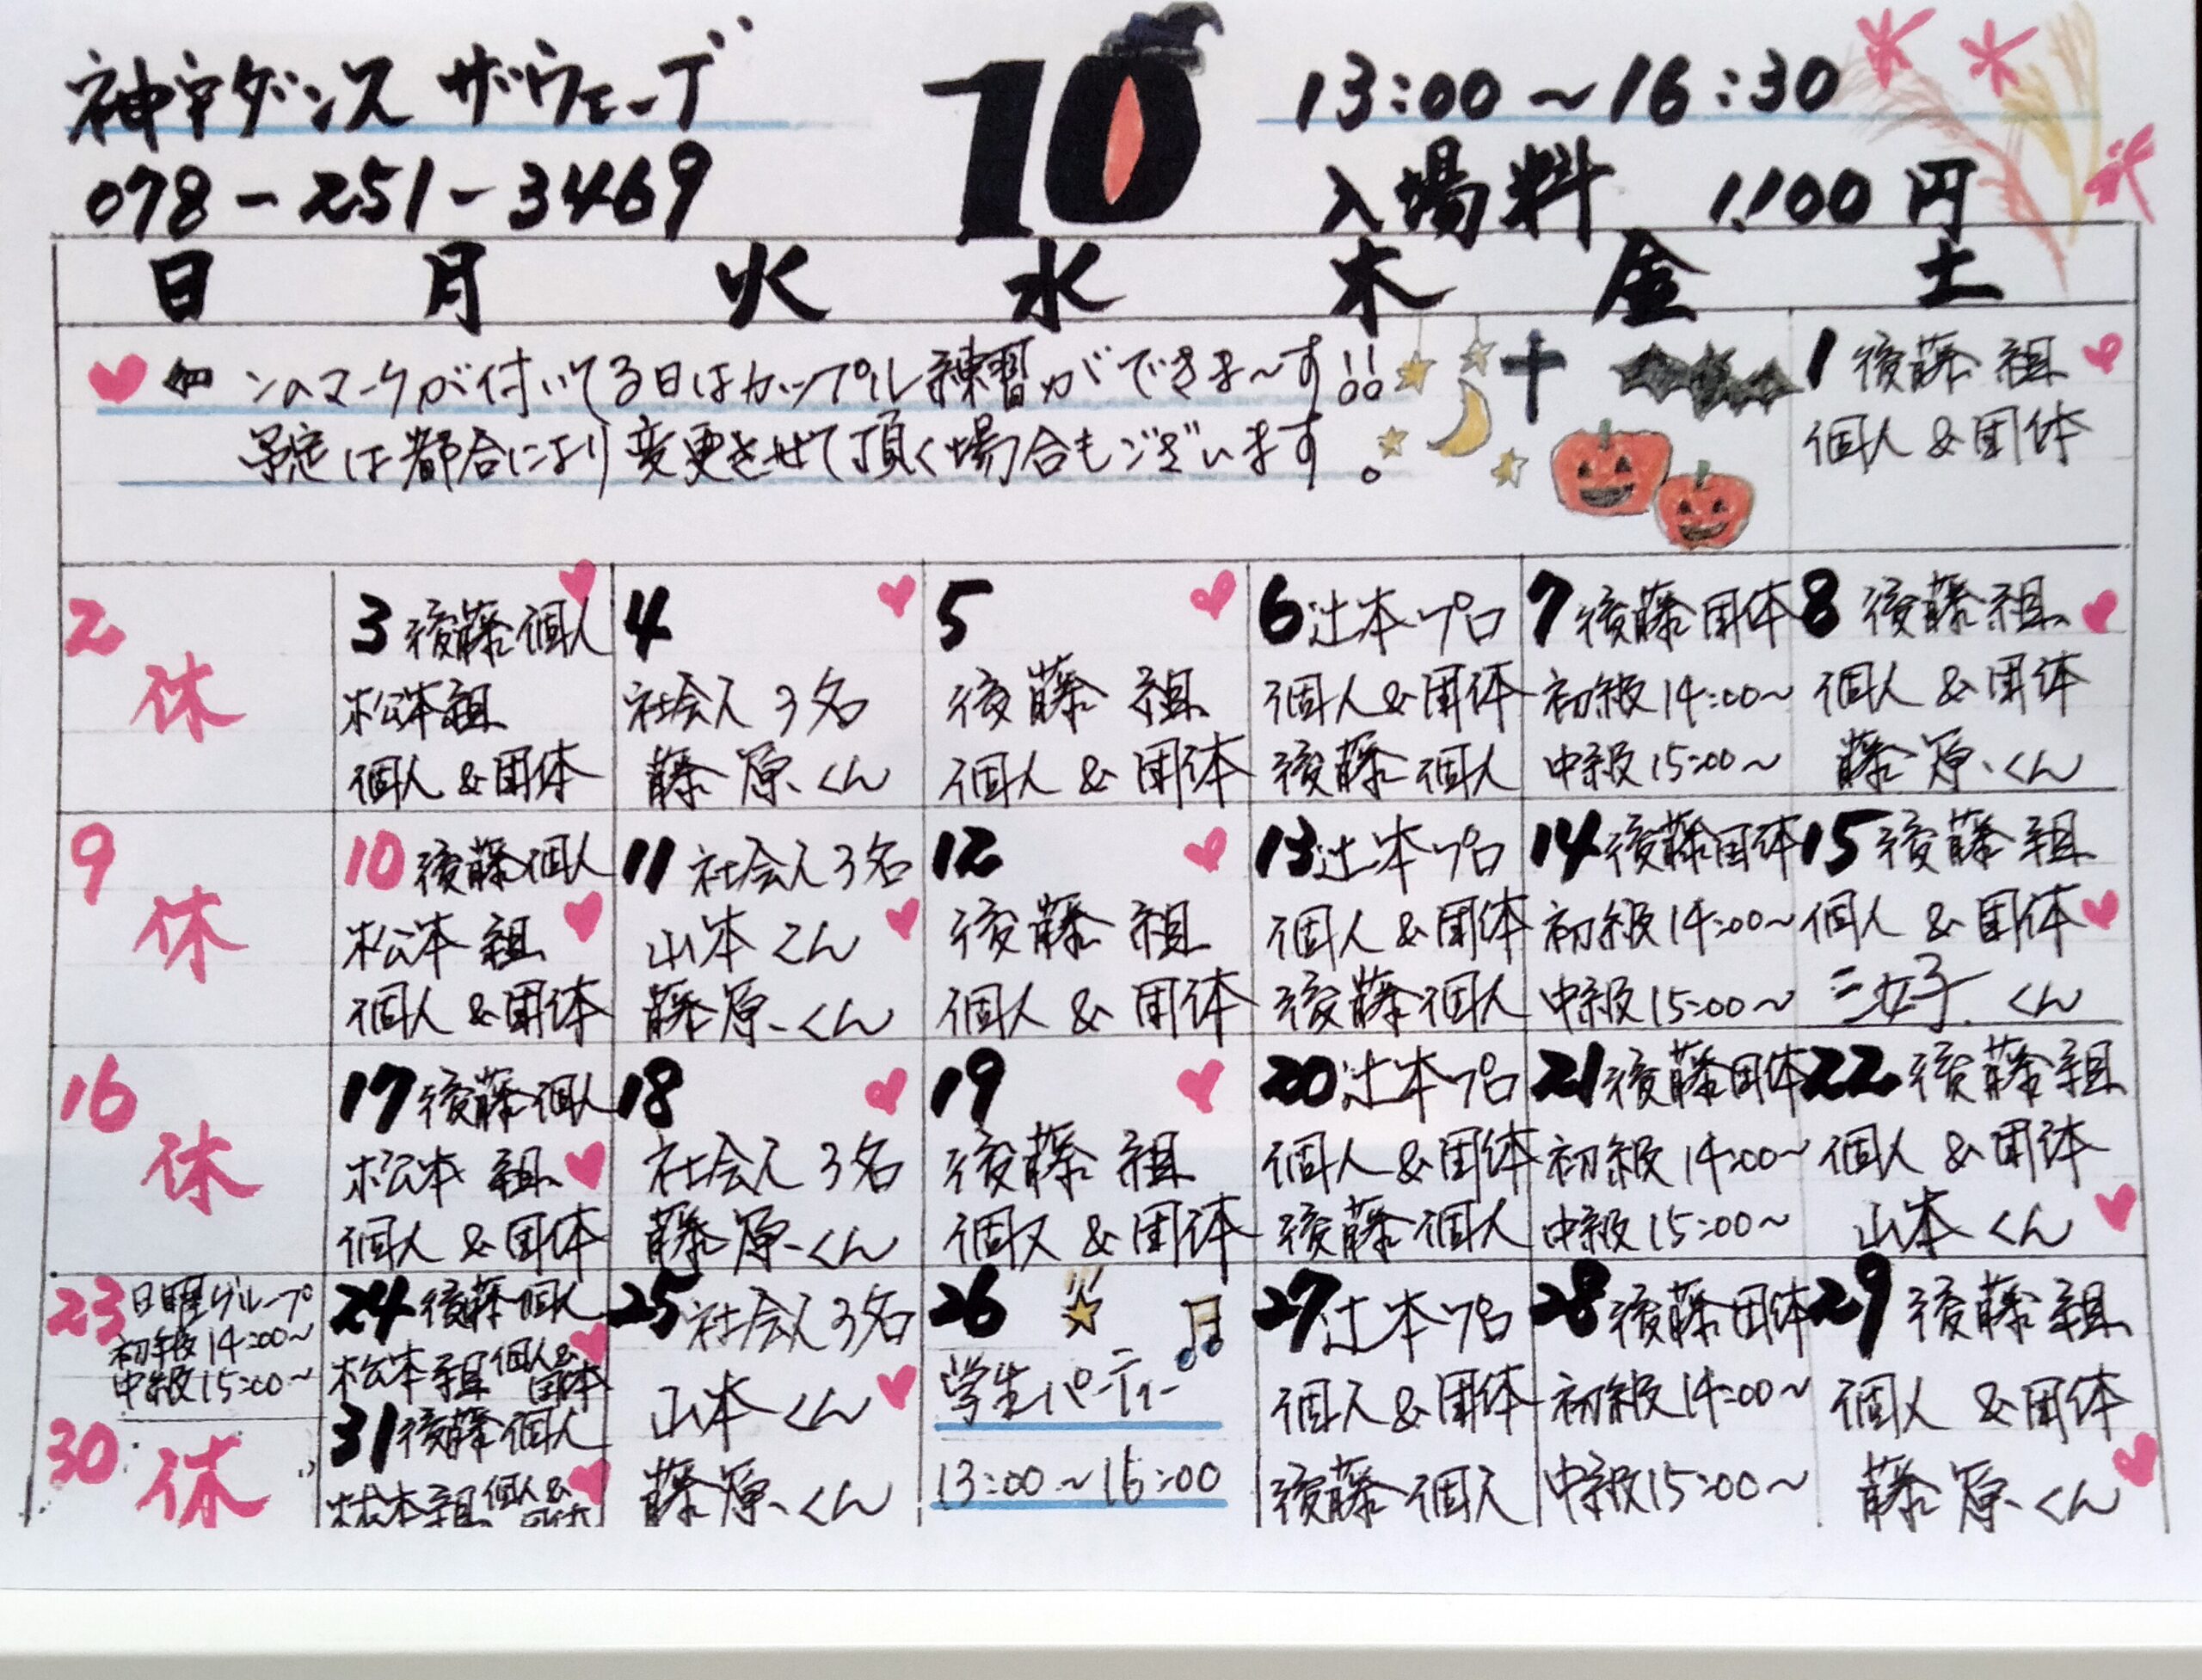 神宇ダンス ザウェーブ
078-251-3469
10
13:00～16:30
入場料 1,100円
日 月 火 水 木 金 土
このマークが付いてる日はカップル練習ができま～す!!
予定は都合により変更させて頂く場合もございます。
1 後藤組
個人&団体
2
休
3 後藤個人
松本組
個人&団体
4
社会人3名
藤原くん
5
後藤組
個人&団体
6 辻本プロ
個人&団体
後藤個人
7 後藤団体
初級14:00～
中級15:00～
8 後藤組
個人&団体
藤原くん
9
休
10 後藤個人
松本組
個人&団体
11 社会人3名
山本くん
藤原くん
12
後藤組
個人&団体
13 辻本プロ
個人&団体
後藤個人
14 後藤団体
初級14:00～
中級15:00～
15 後藤組
個人&団体
三好くん
16
休
17 後藤個人
松本組
個人&団体
18
社会人3名
藤原くん
19
後藤組
個人&団体
20 辻本プロ
個人&団体
後藤個人
21 後藤団体
初級14:00～
中級15:00～
22 後藤組
個人&団体
山本くん
23 日曜グループ
初級14:00～
中級15:00～
24 後藤個人
松本組 個人&団体
25 社会人3名
山本くん
藤原くん
26
学生パーティー
13:00～16:00
27 辻本プロ
個人&団体
後藤個人
28 後藤団体
初級14:00～
中級15:00～
29 後藤組
個人&団体
藤原くん
30
休
31 後藤個人
松本組 個人&団体